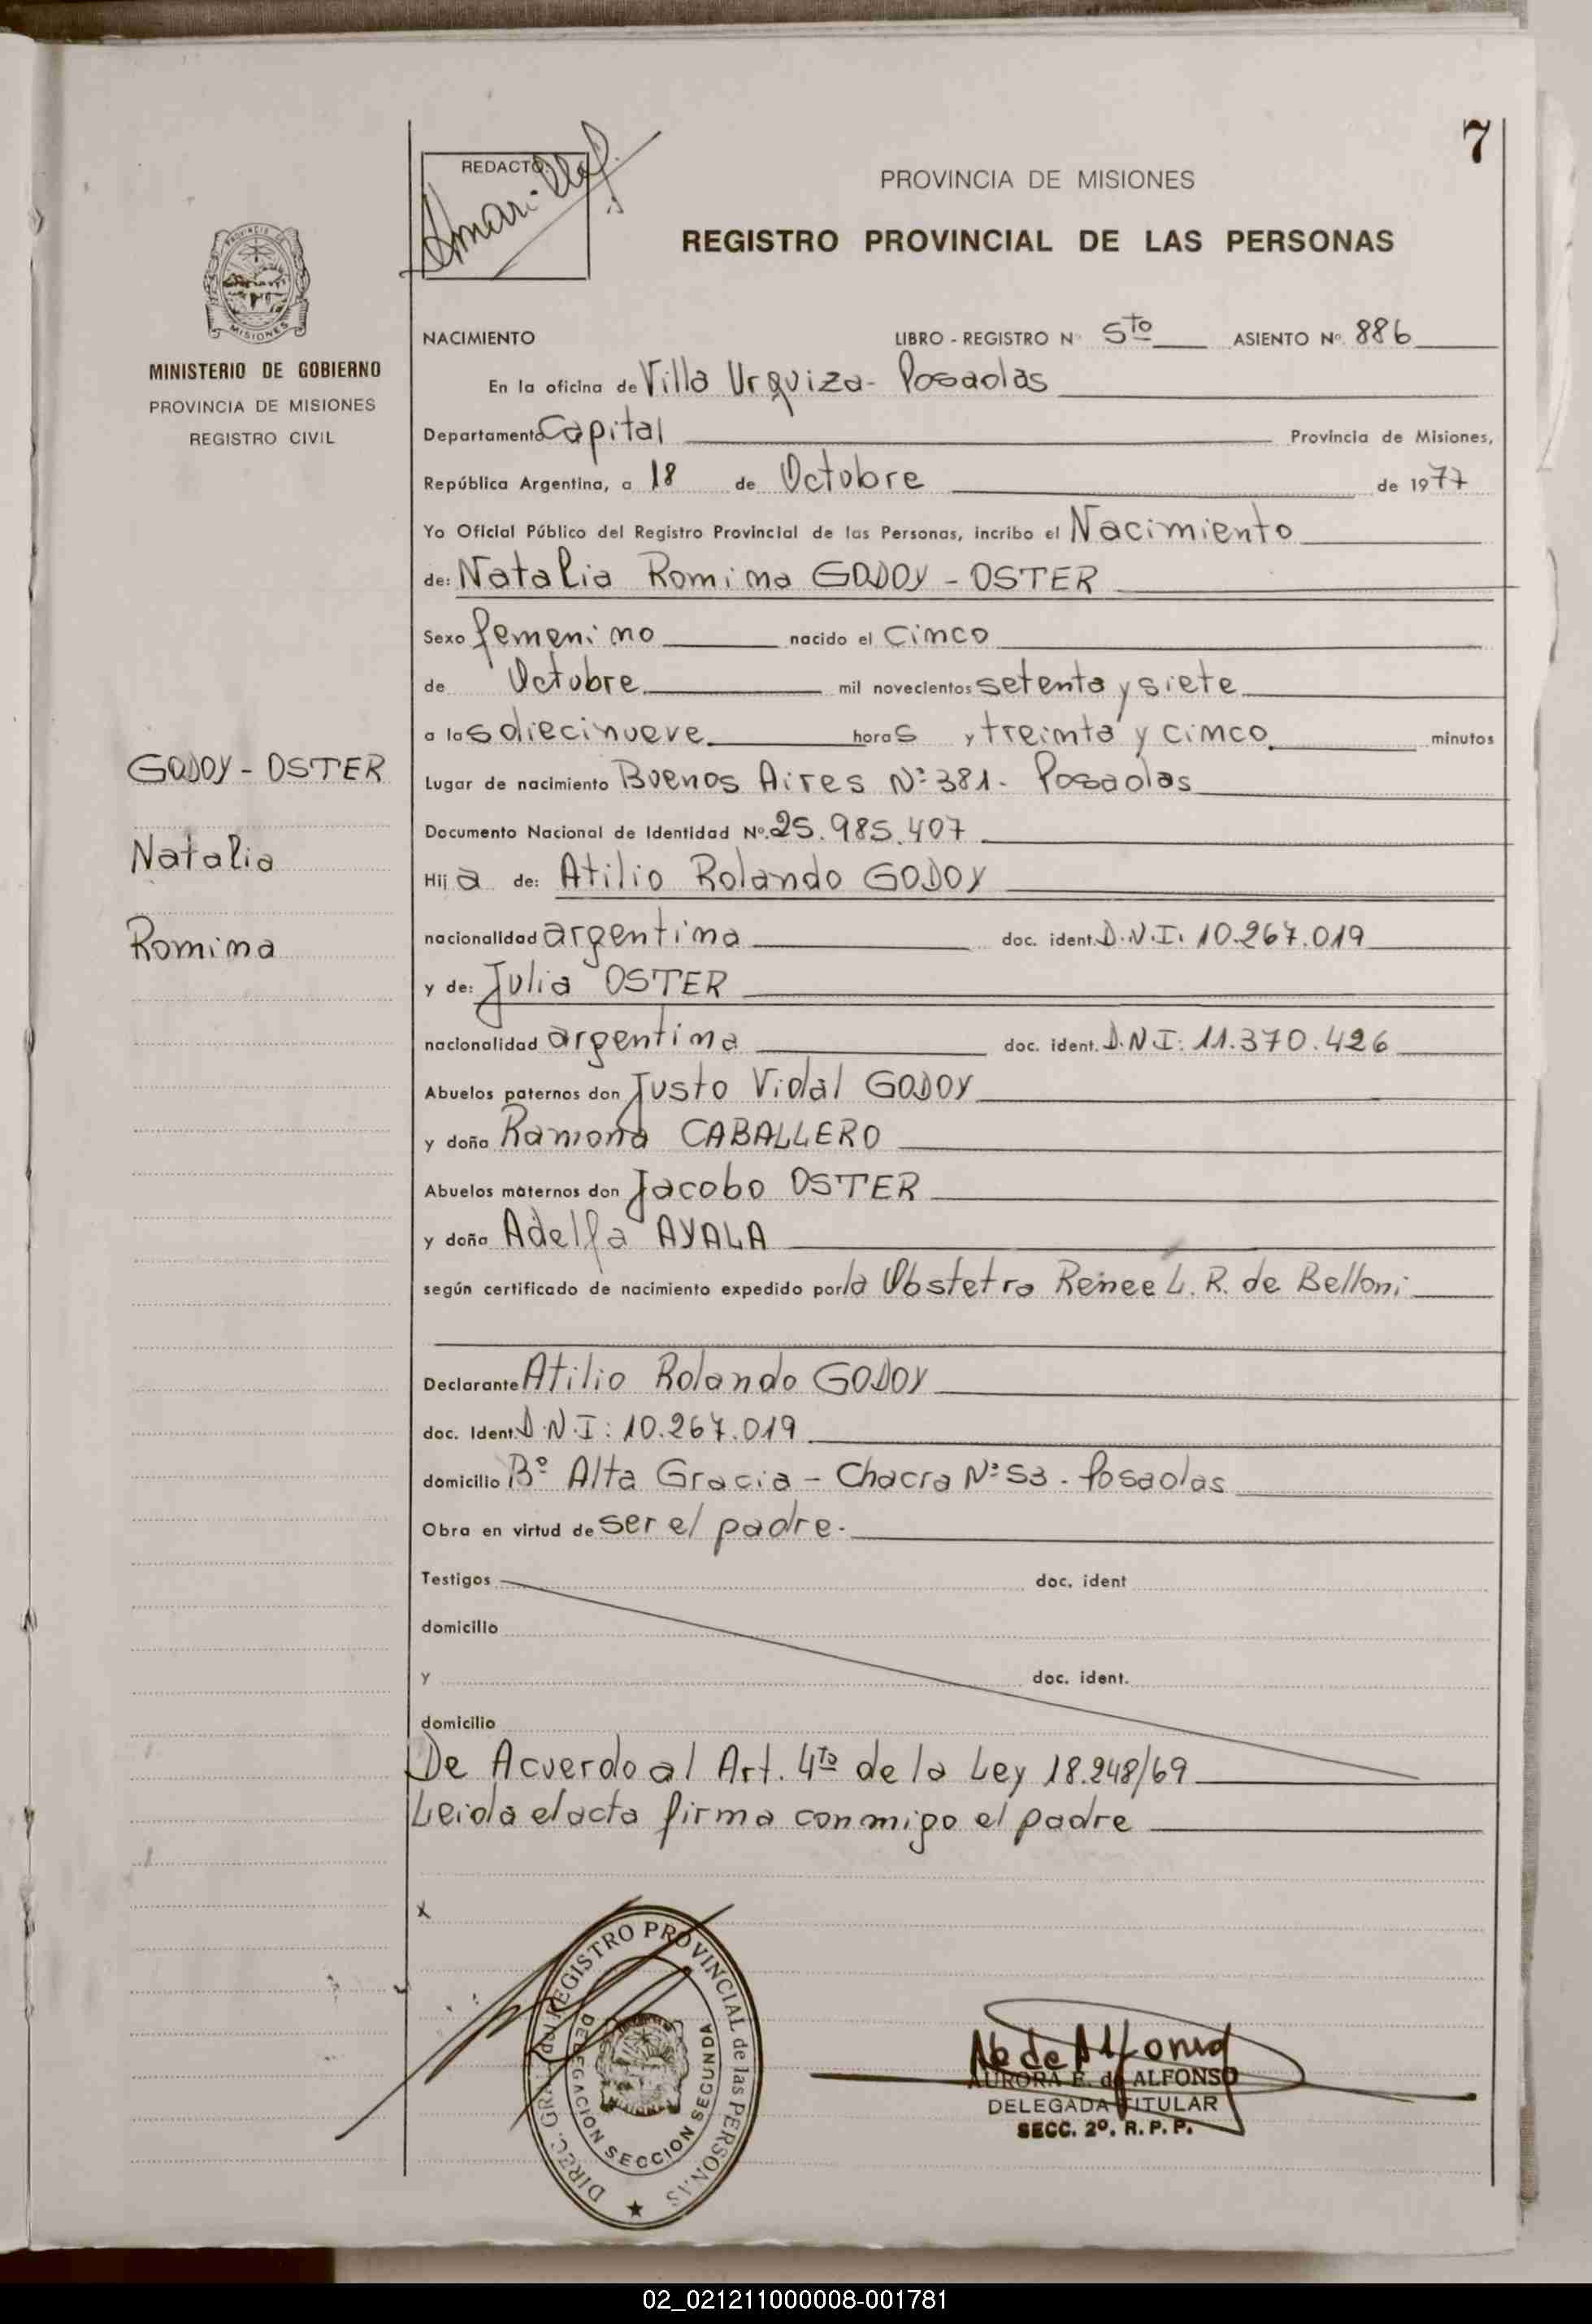 7
REDACTO:
PROVINCIA DE MISIONES
REGISTRO PROVINCIAL DE LAS PERSONAS
PROVINCIA DE
MISIONES
MINISTERIO DE GOBIERNO
PROVINCIA DE MISIONES
REGISTRO CIVIL
NACIMIENTO LIBRO - REGISTRO Nº 5to ASIENTO Nº. 886
En la oficina de Villa Urquiza - Posadas
Departamento Capital Provincia de Misiones,
República Argentina, a 18 de Octubre de 1977
Yo Oficial Público del Registro Provincial de las Personas, incribo el Nacimiento
de: Natalia Romina GODOY - OSTER
Sexo femenino nacido el cinco
de Octubre mil novecientos setenta y siete
a las diecinueve horas y treinta y cinco minutos
GODOY - OSTER
Natalia
Romina
Lugar de nacimiento Buenos Aires Nº 381 - Posadas
Documento Nacional de Identidad Nº. 25.985.407
Hija de: Atilio Rolando GODOY
nacionalidad argentina doc. ident. D.N.I. 10.267.019
y de: Julia OSTER
nacionalidad argentina doc. ident. D.N.I: 11.370.426
Abuelos paternos don Justo Vidal GODOY
y doña Ramona CABALLERO
Abuelos maternos don Jacobo OSTER
y doña Adelfa AYALA
según certificado de nacimiento expedido por la Obstetra Reinee L. R. de Belloni
Declarante Atilio Rolando GODOY
doc. Ident. D.N.I: 10.267.019
domicilio Bº Alta Gracia - Chacra Nº 53 - Posadas
Obra en virtud de ser el padre.
Testigos doc. ident
domicilio
y doc. ident.
domicilio
De Acuerdo al Art. 4to de la Ley 18.248/69
Leida el acta firma conmigo el padre
x
DIREC. GRAL. del REGISTRO PROVINCIAL de las PERSONAS
DELEGACION SECCION SEGUNDA
AURORA E. de ALFONSO
DELEGADA TITULAR
SECC. 2º. R. P. P.
02_021211000008-001781